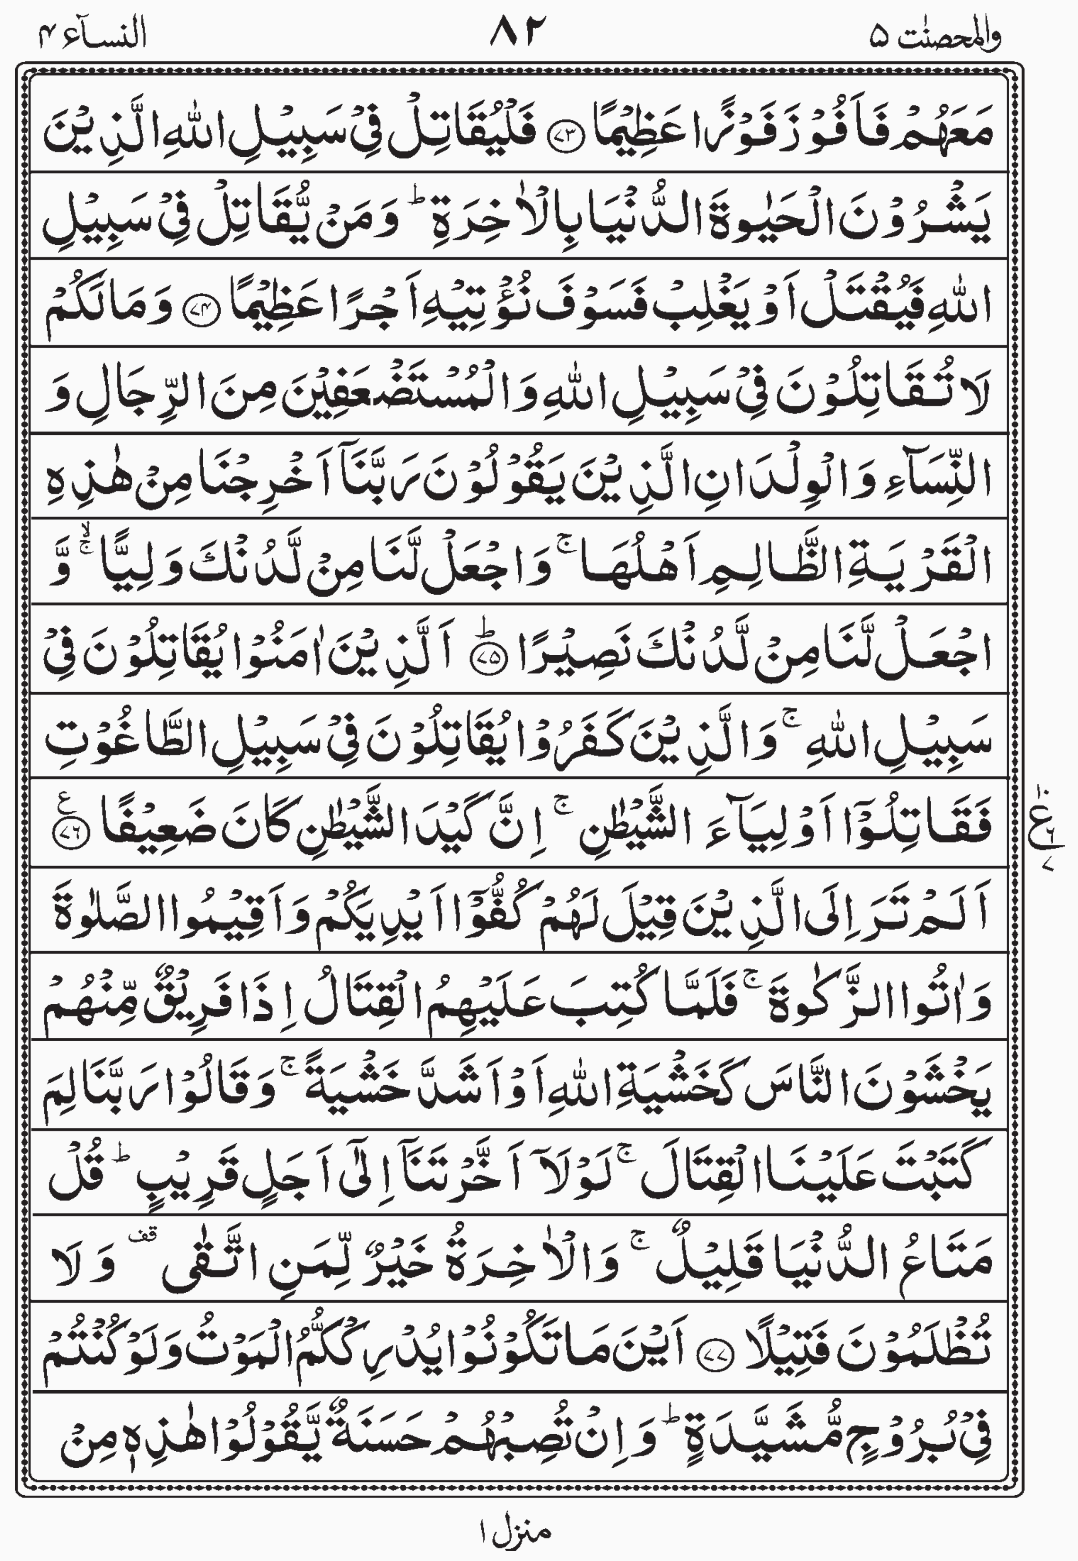 والمحصنٰت ۵ ۸۲ النسآء ۴
مَعَهُمْ فَاَفُوْزَ فَوْزًا عَظِيْمًا ﴿۷۳﴾ فَلْيُقَاتِلْ فِيْ سَبِيْلِ اللّٰهِ الَّذِيْنَ
يَشْرُوْنَ الْحَيٰوةَ الدُّنْيَا بِالْاٰخِرَةِ ؕ وَمَنْ يُّقَاتِلْ فِيْ سَبِيْلِ
اللّٰهِ فَيُقْتَلْ اَوْ يَغْلِبْ فَسَوْفَ نُؤْتِيْهِ اَجْرًا عَظِيْمًا ﴿۷۴﴾ وَمَا لَكُمْ
لَا تُقَاتِلُوْنَ فِيْ سَبِيْلِ اللّٰهِ وَالْمُسْتَضْعَفِيْنَ مِنَ الرِّجَالِ وَ
النِّسَآءِ وَالْوِلْدَانِ الَّذِيْنَ يَقُوْلُوْنَ رَبَّنَاۤ اَخْرِجْنَا مِنْ هٰذِهِ
الْقَرْيَةِ الظَّالِمِ اَهْلُهَا ۚ وَاجْعَلْ لَّنَا مِنْ لَّدُنْكَ وَلِيًّا ۙۚ وَّ
اجْعَلْ لَّنَا مِنْ لَّدُنْكَ نَصِيْرًا ﴿۷۵﴾ؕ اَلَّذِيْنَ اٰمَنُوْا يُقَاتِلُوْنَ فِيْ
سَبِيْلِ اللّٰهِ ۚ وَالَّذِيْنَ كَفَرُوْا يُقَاتِلُوْنَ فِيْ سَبِيْلِ الطَّاغُوْتِ
فَقَاتِلُوْۤا اَوْلِيَآءَ الشَّيْطٰنِ ۚ اِنَّ كَيْدَ الشَّيْطٰنِ كَانَ ضَعِيْفًا ﴿۷۶﴾ ع
۱۰ ع ۶ ۷
اَلَمْ تَرَ اِلَى الَّذِيْنَ قِيْلَ لَهُمْ كُفُّوْۤا اَيْدِيَكُمْ وَاَقِيْمُوا الصَّلٰوةَ
وَاٰتُوا الزَّكٰوةَ ۚ فَلَمَّا كُتِبَ عَلَيْهِمُ الْقِتَالُ اِذَا فَرِيْقٌ مِّنْهُمْ
يَخْشَوْنَ النَّاسَ كَخَشْيَةِ اللّٰهِ اَوْ اَشَدَّ خَشْيَةً ۚ وَقَالُوْا رَبَّنَا لِمَ
كَتَبْتَ عَلَيْنَا الْقِتَالَ ۚ لَوْلَاۤ اَخَّرْتَنَاۤ اِلٰۤى اَجَلٍ قَرِيْبٍ ؕ قُلْ
مَتَاعُ الدُّنْيَا قَلِيْلٌ ۚ وَالْاٰخِرَةُ خَيْرٌ لِّمَنِ اتَّقٰى قف وَلَا
تُظْلَمُوْنَ فَتِيْلًا ﴿۷۷﴾ اَيْنَ مَا تَكُوْنُوْا يُدْرِكْكُّمُ الْمَوْتُ وَلَوْ كُنْتُمْ
فِيْ بُرُوْجٍ مُّشَيَّدَةٍ ؕ وَاِنْ تُصِبْهُمْ حَسَنَةٌ يَّقُوْلُوْا هٰذِهٖ مِنْ
منزل ۱